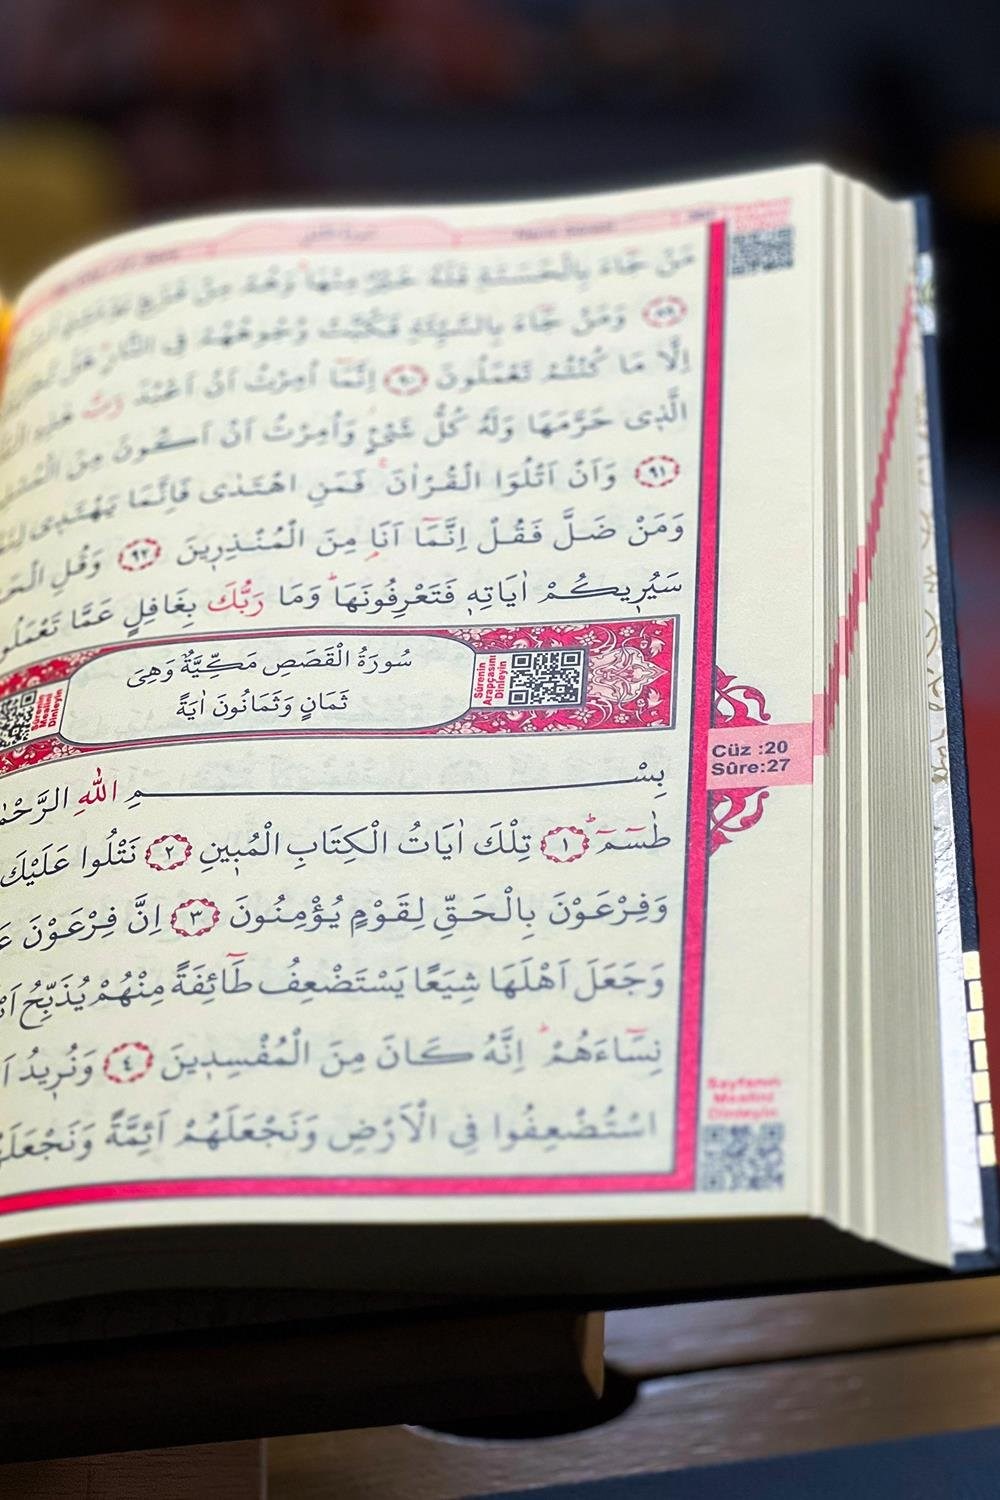 مَنْ جَٓاءَ بِالْحَسَنَةِ فَلَهُ خَيْرٌ مِنْهَا وَهُمْ مِنْ فَزَعٍ
٨٩ وَمَنْ جَٓاءَ بِالسَّيِّئَةِ فَكُبَّتْ وُجُوهُهُمْ فِي النَّارِ هَلْ
اِلَّا مَا كُنْتُمْ تَعْمَلُونَ ٩٠ اِنَّمَٓا اُمِرْتُ اَنْ اَعْبُدَ رَبَّ هٰذِهِ
الَّذِى حَرَّمَهَا وَلَهُ كُلُّ شَیْءٍ وَاُمِرْتُ اَنْ اَكُونَ مِنَ
٩١ وَاَنْ اَتْلُوَا الْقُرْاٰنَ فَمَنِ اهْتَدٰى فَاِنَّمَا يَهْتَدِى
وَمَنْ ضَلَّ فَقُلْ اِنَّمَٓا اَنَا مِنَ الْمُنْذِرِينَ ٩٢ وَقُلِ
سَيُرِيكُمْ اٰيَاتِهٖ فَتَعْرِفُونَهَا وَمَا رَبُّكَ بِغَافِلٍ عَمَّا
سُورَةُ الْقَصَصِ مَكِّيَّةٌ وَهِىَ
ثَمَانٍ وَثَمَانُونَ اٰيَةً
Sûrenin
Arapçasını
Dinleyin
Sûrenin
Mealini
Dinleyin
Cüz :20
Sûre:27
بِسْـــمِ اللّٰهِ
طٰسٓمٓ ١ تِلْكَ اٰيَاتُ الْكِتَابِ الْمُبِينِ ٢ نَتْلُوا عَلَيْكَ
وَفِرْعَوْنَ بِالْحَقِّ لِقَوْمٍ يُؤْمِنُونَ ٣ اِنَّ فِرْعَوْنَ
وَجَعَلَ اَهْلَهَا شِيَعًا يَسْتَضْعِفُ طَٓائِفَةً مِنْهُمْ يُذَبِّحُ
نِسَٓاءَهُمْ اِنَّهُ كَانَ مِنَ الْمُفْسِدِينَ ٤ وَنُرِيدُ
اسْتُضْعِفُوا فِي الْاَرْضِ وَنَجْعَلَهُمْ اَئِمَّةً
Sayfanın
Mealini
Dinleyin